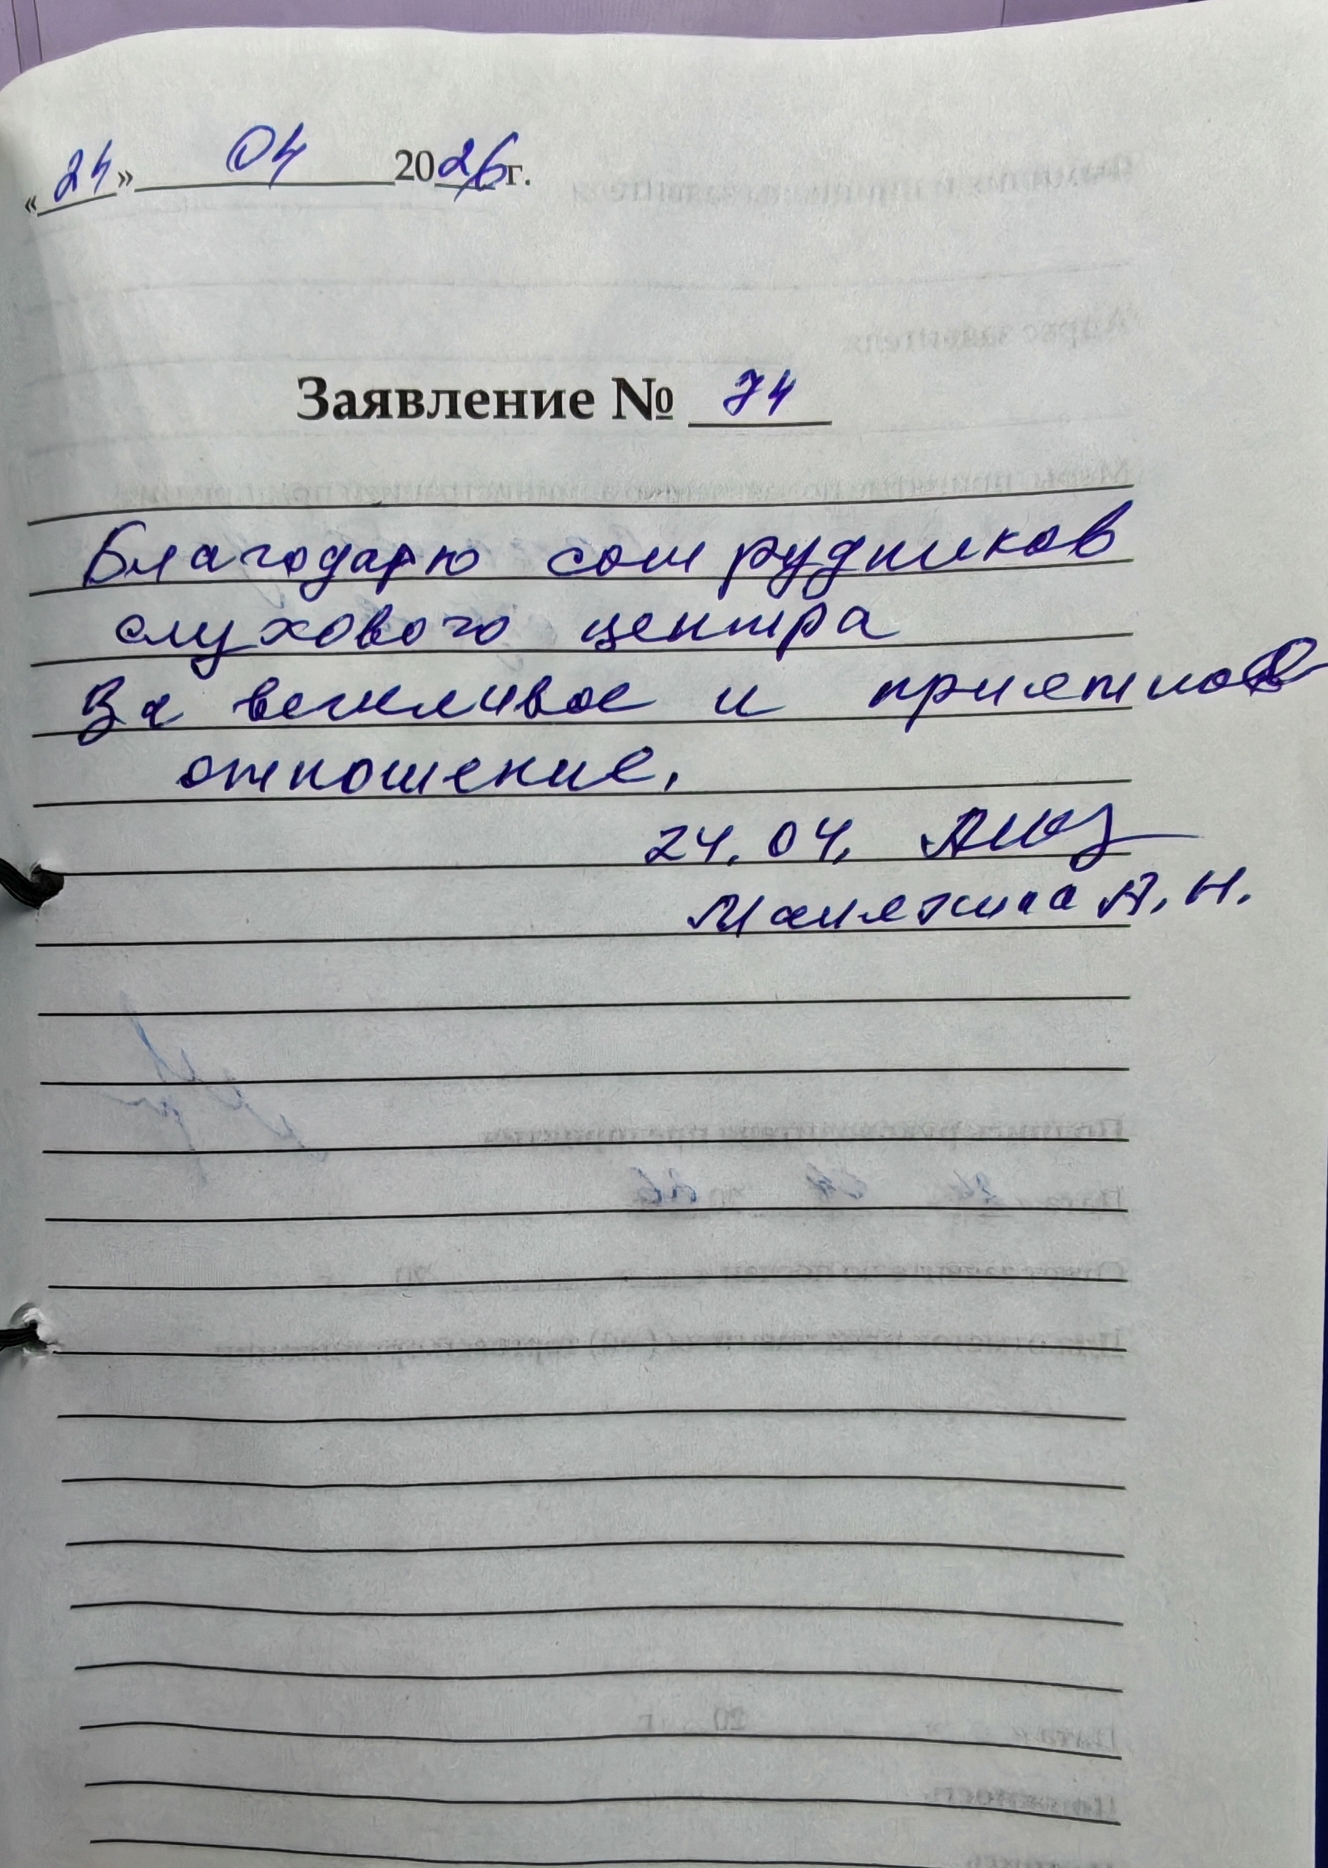 «24» 04 2026г.
Заявление № 74
Благодарю сотрудников
слухового центра
За вежливое и приятное
отношение.
24.04.
А.Н.